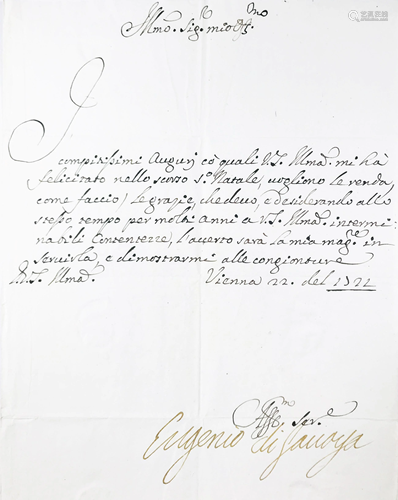 Illmo. Sig.re mio Oss.mo
I
compitissimi Augurj cò quali V.S. Illma. mi hà
felicitato nello scorso S.o Natale, vogliono le renda,
come faccio, le grazie, che devo, e desiderando allo
stesso tempo per molti anni a V.S. Illma. intermi-
nabili Contentezze, l'averto sarà la mia mag.re in
servirla, e dimostrarmi alle congionture
D.V.S. Illma. Vienna 22. del 1721
Affo.m Ser.e
Eugenio di Savoya